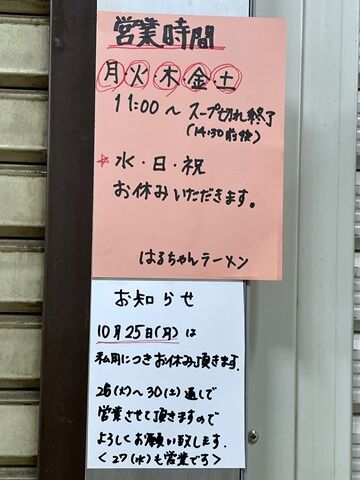 営業時間
月・火・木・金・土
11:00〜スープ切れ終了
(14:30前後)
*水・日・祝
お休みいただきます。
はるちゃんラーメン
お知らせ
10月25日(月)は
私用につきお休み頂きます.
26(火)〜30(土)通しで
営業させて頂きますので
よろしくお願い致します.
<27(水)も営業です>